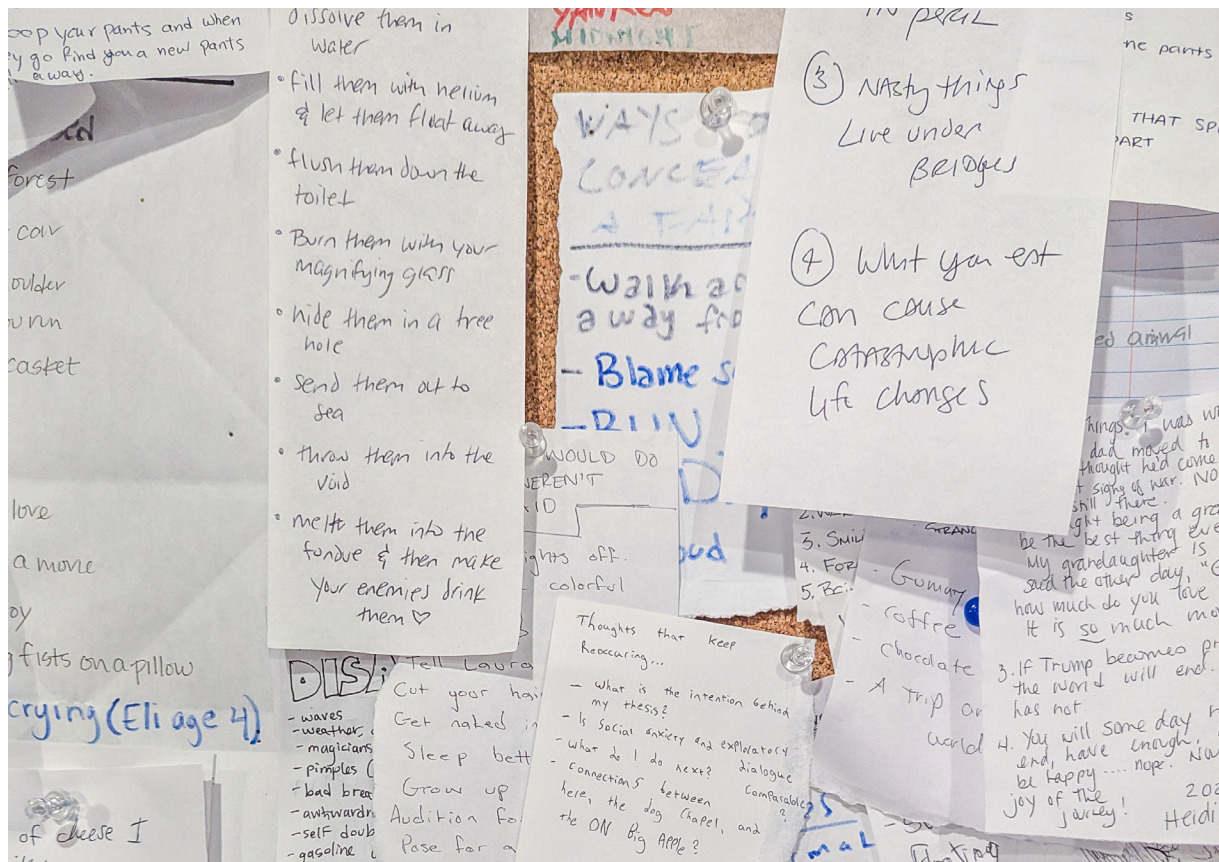 oop your pants and when
y go find you a new pants
away.
forest
car
oulder
u run
casket
love
a movie
oy
fists on a pillow
crying (Eli age 4)
of cheese I
Dissolve them in
water
• fill them with helium
& let them float away
• flush them down the
toilet
• Burn them with your
magnifying glass
• hide them in a tree
hole
• send them out to
sea
• throw them into the
void
• melt them into the
fondue & then make
your enemies drink
them ♡
MIDNIGHT
WAYS TO
CONCEA
A FA
- Walk
away fro
- Blame s
- RUN
oud
WOULD DO
WEREN'T
ights off.
colorful
DISA
- waves
- weather,
- magicians
- pimples (
- bad brea
- awkwardn
- self doub
- gasoline
Tell Laura
Cut your hai
Get naked in
Sleep bett
Grow up
Audition fo
Pose for a
Thoughts that keep
Reoccuring...
- What is the intention behind
my thesis?
- Is social anxiety and exploratory
dialogue comparable?
- What do I do next?
- Connections between
here, the dog chapel, and
the ON Big Apple?
IN PERIL
③ NAsty things
Live under
BRIDges
④ What you eat
can cause
CATASTROPHIC
life changes
ne pants
THAT SP
PART
ed animal
3. SMILI
4. FOR
5. BEi
- Gummy
- Coffee
- Chocolate
- A Trip or
world
things. I was w
dad moved to
thought he'd come
signs of war. NO
still there.
ght being a gra
be the best thing eve
My grandaughter is
said the other day, "G
how much do you love
It is so much mo
3. If Trump becomes pr
the world will end.
has not
4. You will some day r
end, have enough,
be happy.... nope. No
joy of the
journey!
202
Heidi